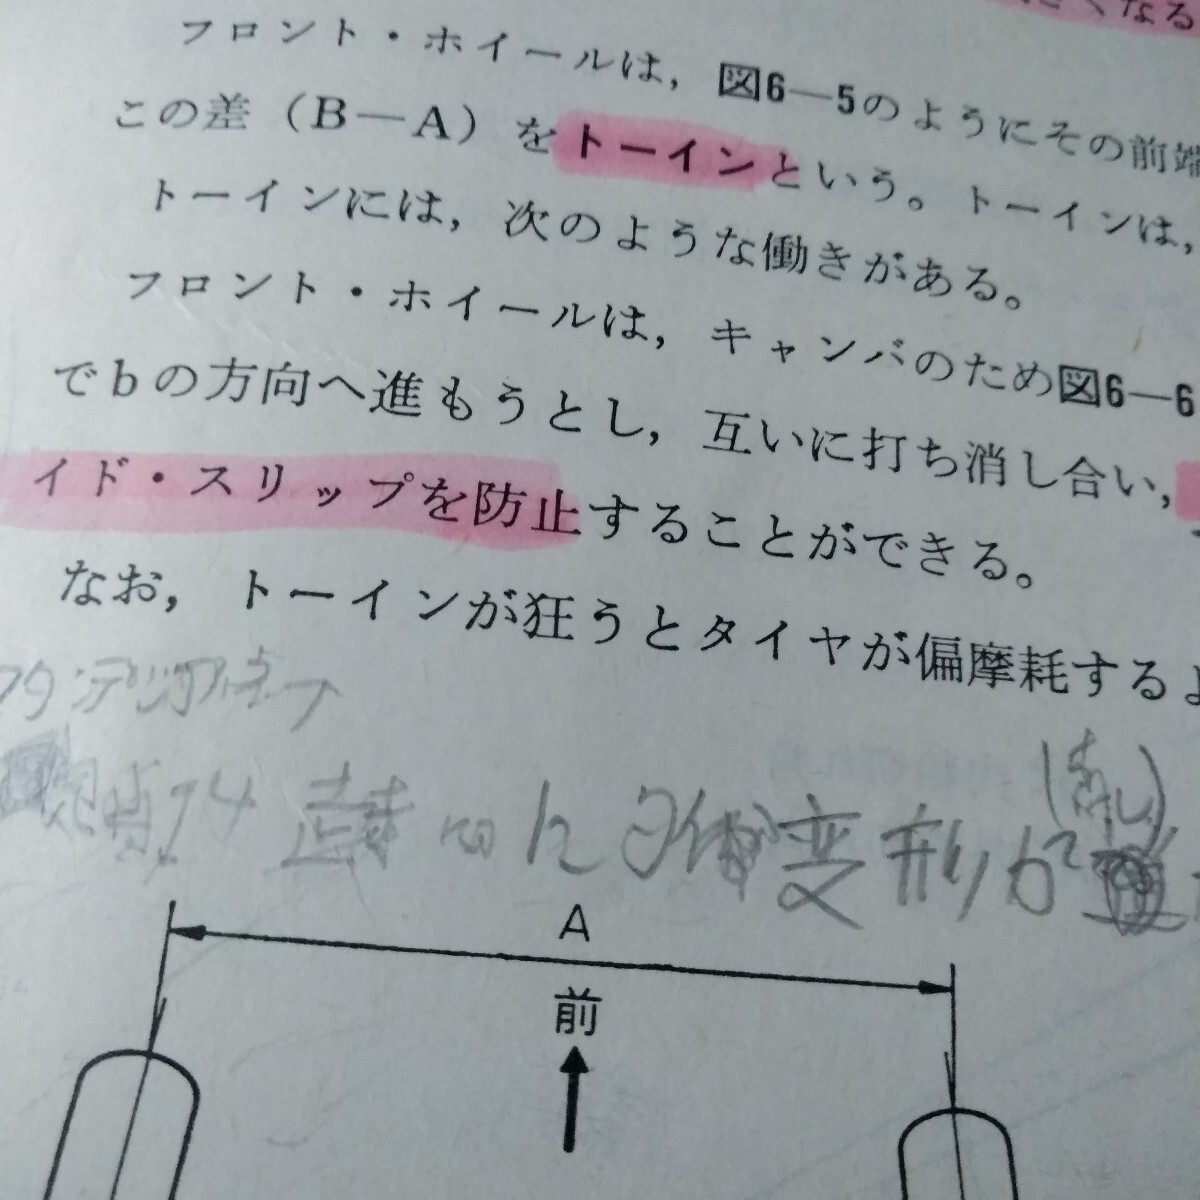 くなる
フロント・ホイールは，図6—5のようにその前端
この差（B—A）をトーインという。トーインは，
トーインには，次のような働きがある。
フロント・ホイールは，キャンバのため図6—6
でbの方向へ進もうとし，互いに打ち消し合い，
イド・スリップを防止することができる。
なお，トーインが狂うとタイヤが偏摩耗するよ
変形が
A
前